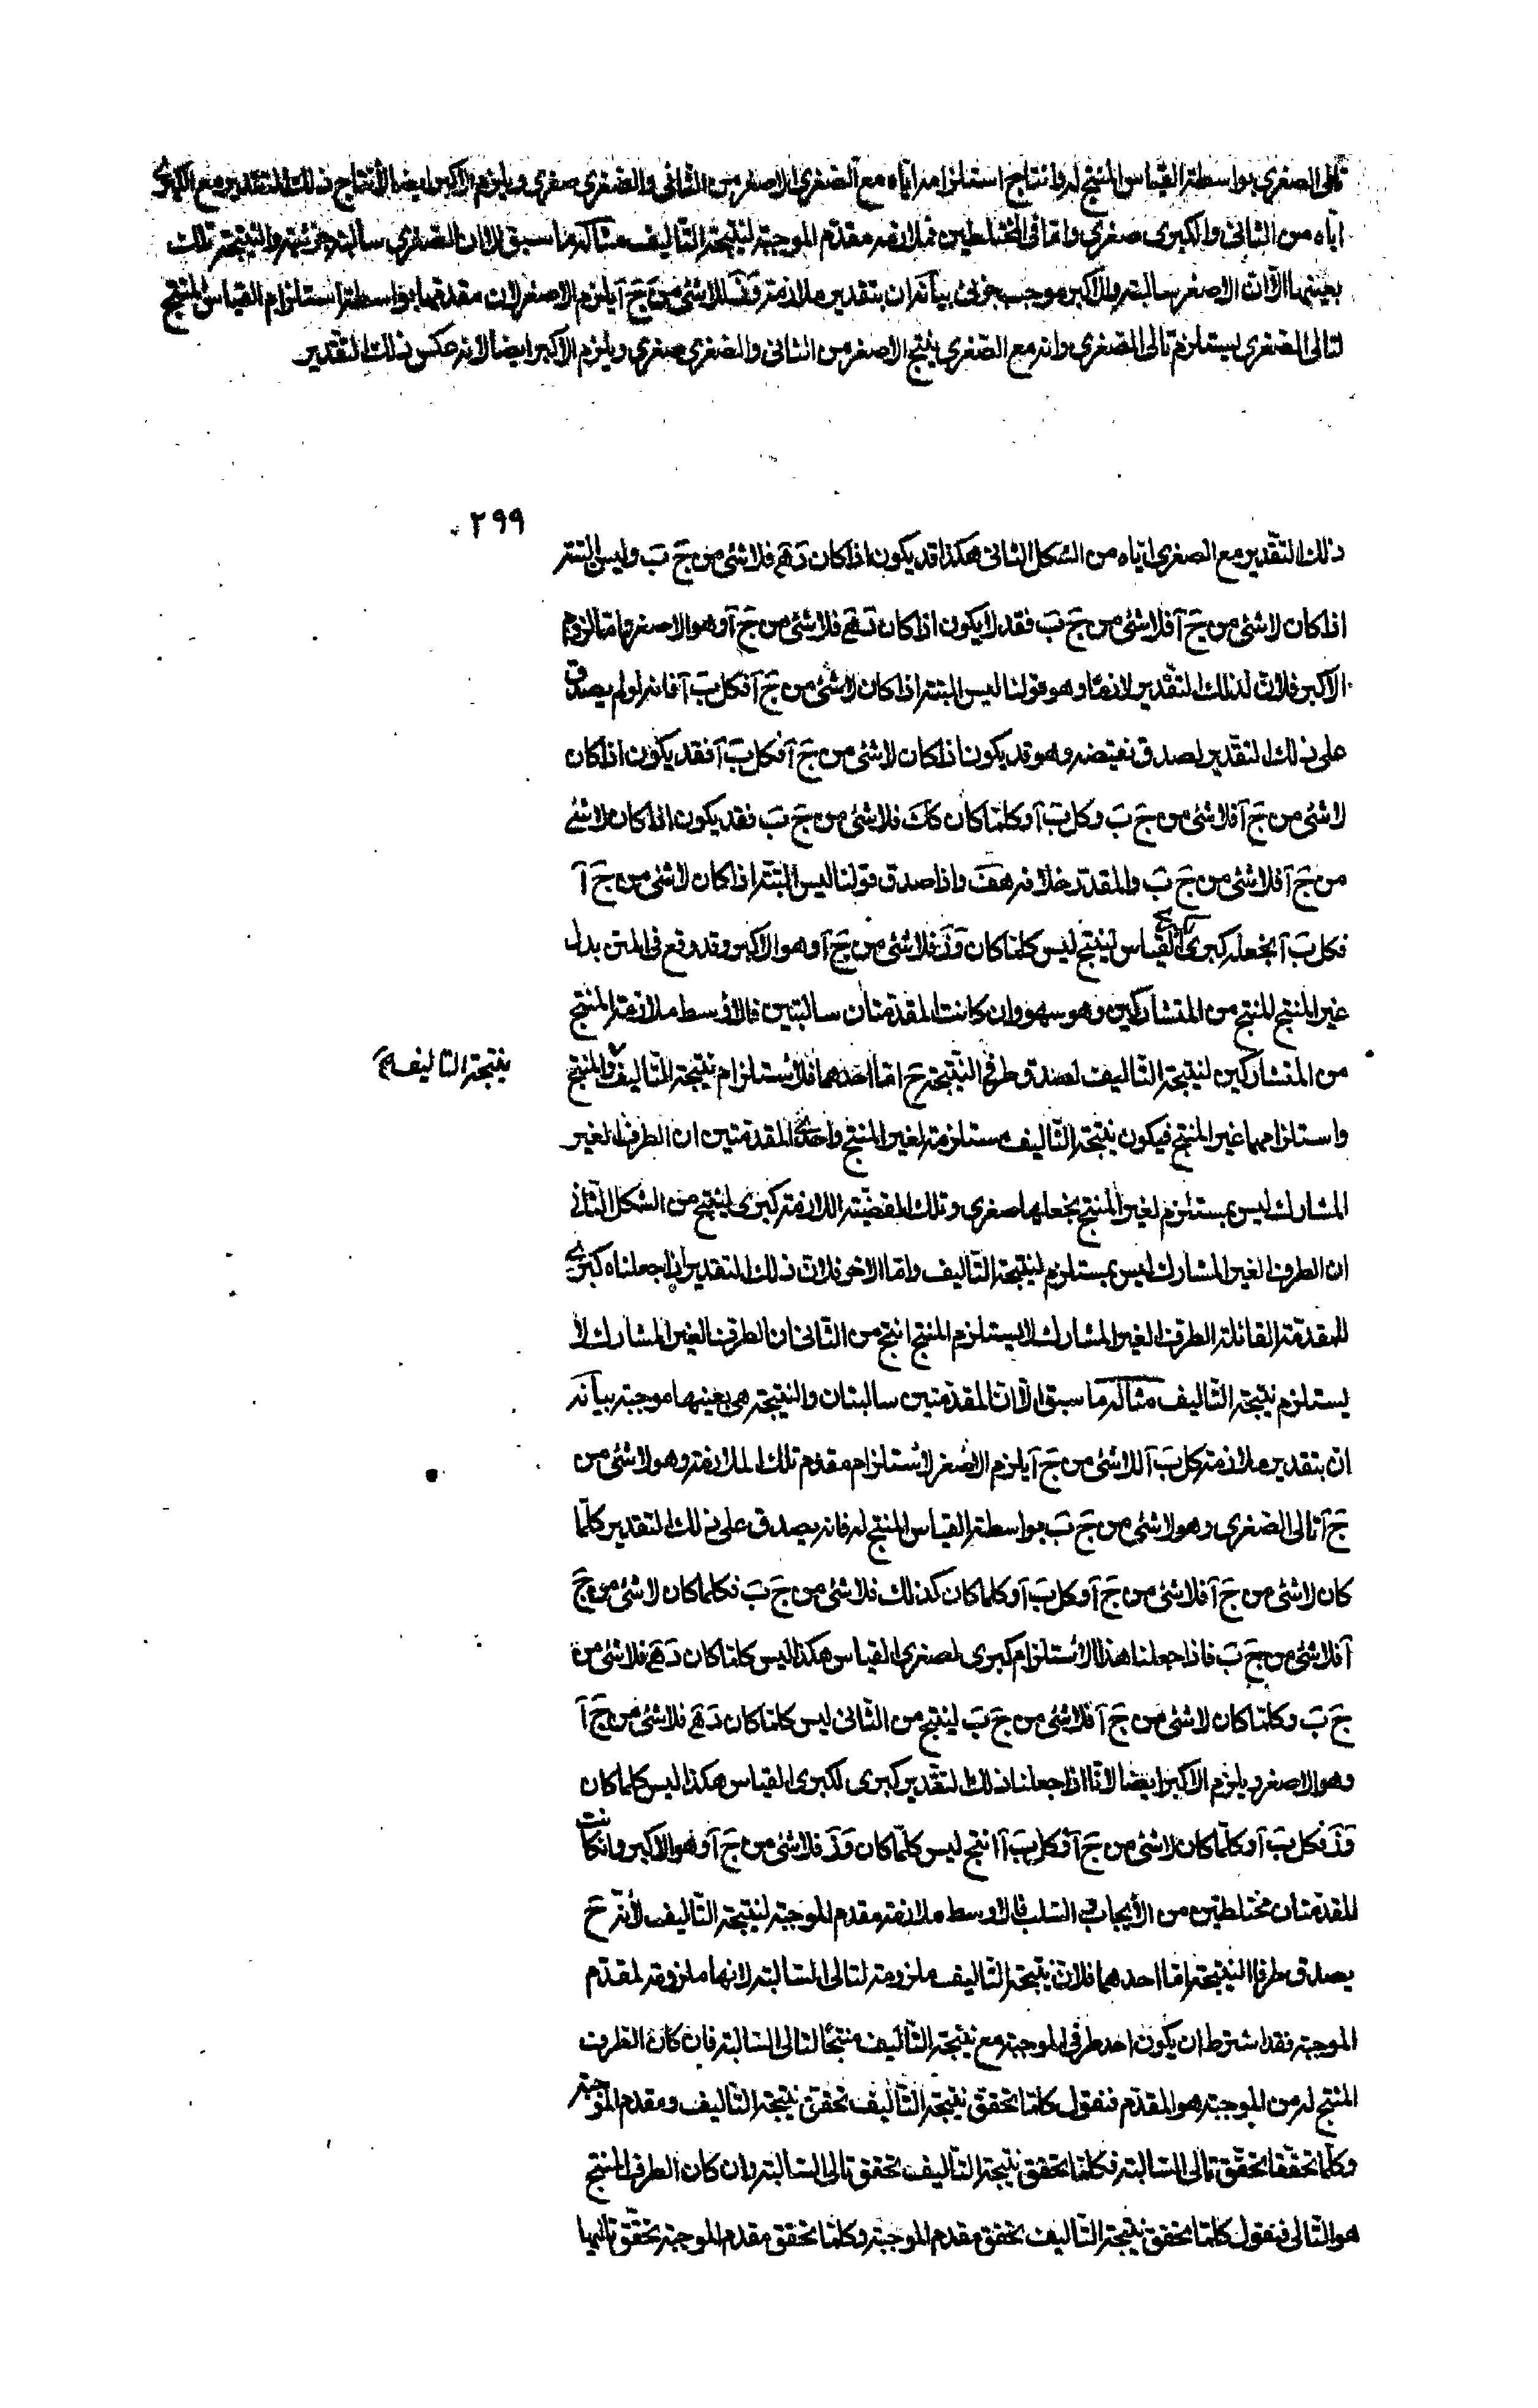 تالى الصغرى بواسطة القياس المنتج له وانتاج استلزامه اياه مع الصغرى الاصغر من الثانى والصغرى صغرى ويلزم الاكبر ايضا لانتاج ذلك التقدير مع الكبرى
اياه من الثانى والكبرى صغرى واما فى المختلطين فملازمة مقدم الموجبة لنتيجة التاليف مثاله ما سبق الا ان الصغرى سالبة جزئية والنتيجة تلك
بعينها الا ان الاصغر سالبة والاكبر موجب جزئى بيانه ان بتقدير ملازمة وز للاشئ من ج آ يلزم الاصغر لان مقدمها بواسطة استلزام القياس المنتج
لتالى الصغرى يستلزم تالى الصغرى وانه مع الصغرى ينتج الاصغر من الثانى والصغرى صغرى ويلزم الاكبر ايضا لانه عكس ذلك التقدير
٢٩٩
ذلك التقدير مع الصغرى اياه من الشكل الثانى هكذا قد يكون اذا كان د ه فلا شئ من ج ب وليس البتة
اذا كان لا شئ من ج آ فلا شئ من ج ب فقد لا يكون اذا كان د ه فلا شئ من ج آ وهو الاصغر واما لزوم
الاكبر فلان لذلك التقدير لازما وهو قولنا ليس البتة اذا كان لا شئ من ج آ فكل ب آ فانه لو لم يصدق
على ذلك التقدير لصدق نقيضه وهو قد يكون اذا كان لا شئ من ج آ فكل ب آ فقد يكون اذا كان
لا شئ من ج آ فلا شئ من ج ب وكل ب آ وكلما كان كك فلا شئ من ج ب فقد يكون اذا كان لا شئ
من ج آ فلا شئ من ج ب والمقدر خلافه هف واذا صدق قولنا ليس البتة اذا كان لا شئ من ج آ
فكل ب آ نجعله كبرى لكبرى القياس لينتج ليس كلما كان وز فلا شئ من ج آ وهو الاكبر وقد وقع فى المتن بدل
غير المنتج المنتج من المتشاركين وهو سهو وان كانت المقدمتان سالبتين فالاوسط ملازمة المنتج
من المتشاركين لنتيجة التاليف لصدق طرفى النتيجة ح اما احدهما فلاستلزام نتيجة التاليف والمنتج
نتيجة التاليف
واستلزامهما غير المنتج فيكون نتيجة التاليف مستلزمة لغير المنتج واحدى المقدمتين ان الطرف الغير
المشارك ليس بمستلزم لغير المنتج نجعلها صغرى وتلك القضية اللازمة كبرى لينتج من الشكل الثانى
ان الطرف الغير المشارك ليس بمستلزم لنتيجة التاليف واما الاخر فلان ذلك التقدير اذا جعلناه كبرى
للمقدمة القائلة الطرف الغير المشارك لا يستلزم المنتج انتج من الثانى ان الطرف الغير المشارك لا
يستلزم نتيجة التاليف مثاله ما سبق الا ان المقدمتين سالبتان والنتيجة هى بعينها موجبة بيانه
ان بتقدير ملازمة كل ب آ للاشئ من ج آ يلزم الاصغر لاستلزام مقدم تلك الملازمة وهو لا شئ من
ج آ تالى الصغرى وهو لا شئ من ج ب بواسطة القياس المنتج له فانه يصدق على ذلك التقدير كلما
كان لا شئ من ج آ فلا شئ من ج آ وكل ب آ وكلما كان كذلك فلا شئ من ج ب فكلما كان لا شئ من ج
آ فلا شئ من ج ب فاذا جعلنا هذا الاستلزام كبرى لصغرى القياس هكذا ليس كلما كان د ه فلا شئ من
ج ب وكلما كان لا شئ من ج آ فلا شئ من ج ب لينتج من الثانى ليس كلما كان د ه فلا شئ من ج آ
وهو الاصغر ويلزم الاكبر ايضا لانا اذا جعلنا ذلك التقدير كبرى لكبرى القياس هكذا ليس كلما كان
وز فكل ب آ وكلما كان لا شئ من ج آ فكل ب آ انتج ليس كلما كان وز فلا شئ من ج آ وهو الاكبر وان كانت
المقدمتان مختلطتين من الايجاب و السلب فالاوسط ملازمة مقدم الموجبة لنتيجة التاليف لانه ح
يصدق طرفا النتيجة اما احدهما فلان نتيجة التاليف ملزومة لتالى السالبة لانها ملزومة لمقدم
الموجبة فقد اشترط ان يكون احد طرفى الموجبة مع نتيجة التاليف منتجا لتالى السالبة فان كان الطرف
المنتج له من الموجبة هو المقدم فنقول كلما تحقق نتيجة التاليف تحقق نتيجة التاليف ومقدم الموجبة
وكلما تحققا تحقق تالى السالبة فكلما تحقق نتيجة التاليف تحقق تالى السالبة وان كان الطرف المنتج
هو التالى فنقول كلما تحقق نتيجة التاليف تحقق مقدم الموجبة وكلما تحقق مقدم الموجبة تحقق تاليها